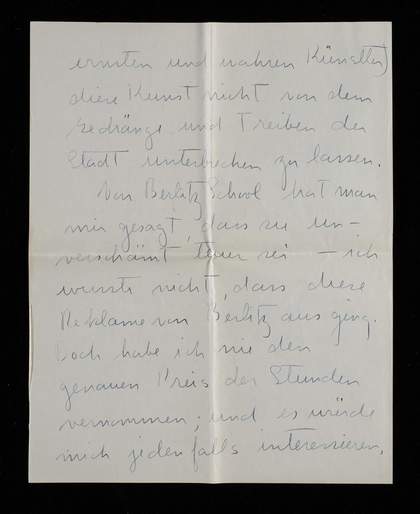 ernsten und wahren Künstler)
diese Kunst nicht von dem
Gedränge und Treiben der
Stadt unterbrechen zu lassen.
Von Berlitz School hat man
mir gesagt, dass sie un-
verschämt teuer sei – ich
wusste nicht, dass diese
Reklame von Berlitz ausging.
Doch habe ich nie den
genauen Preis der Stunden
vernommen; und es würde
mich jedenfalls interessieren,